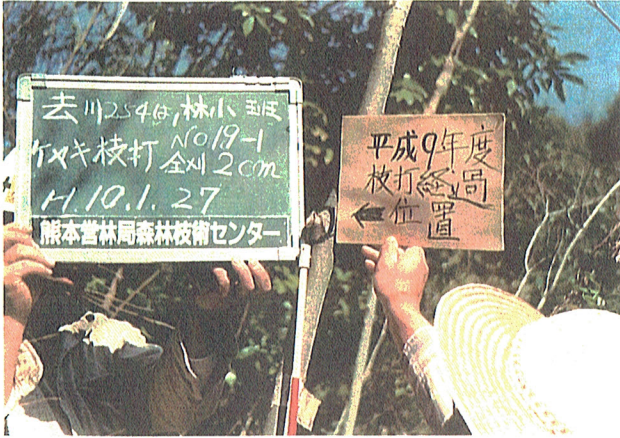 去川254は,林小班
ケヤキ枝打 No19-1
全刈 2cm
H.10.1.27
熊本営林局森林技術センター
平成9年度
枝打経過
位置